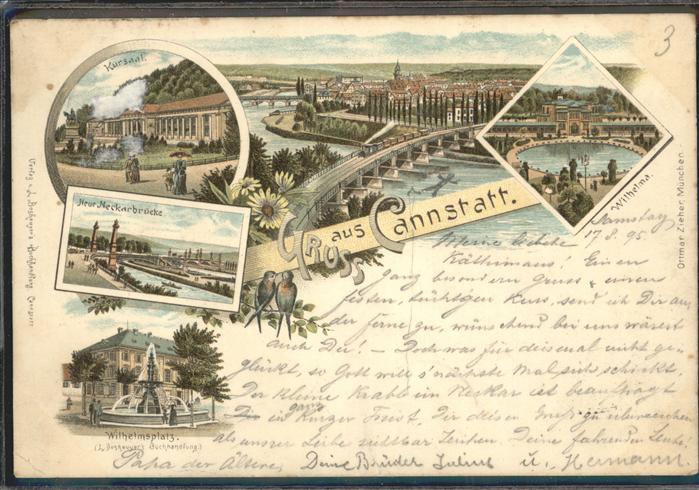 3
Kursaal.
Neue Neckarbrücke.
Wilhelma.
Gruss aus Cannstatt.
Wilhelmsplatz.
(L. Bosheuyer's Buchhandlung.)
Verlag v. L. Bosheuyer's Buchhandlung, Cannstatt
Ottmar Zieher, München.
Samstag
17 8. 95.
Meine liebe
Käthimaus! Einen
ganz besondern Gruss & einen
festen, tüchtigen Kuss, send ich Dir aus
der Ferne zu, wünschend bei uns wärest
auch Du! – Doch was für diesmal nicht ge-
glückt, so Gott will s' nächste Mal sichs schickt.
Der kleine Krabb im Neckar ist beauftragt
in ganz kurzer Frist, Dir diesen Gruß zu überreichen
als unsrer Liebe sichtbar Zeichen. Deine fahrenden Leute:
Papa der Ältere, Deine Brüder Julius u. Hermann.